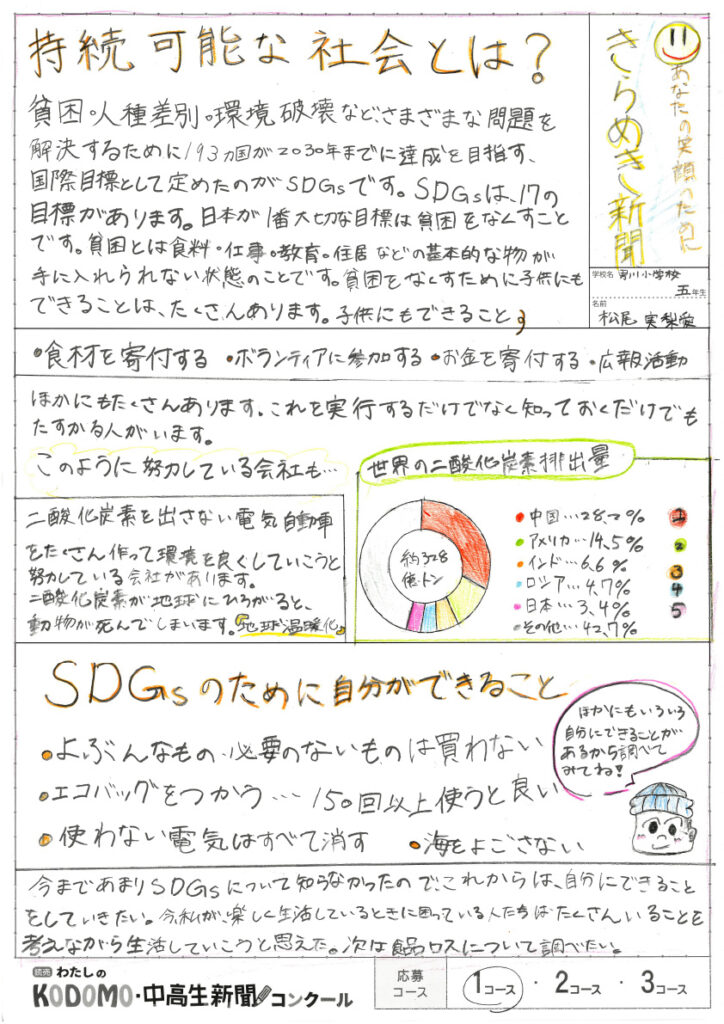 持続可能な社会とは?
貧困・人種差別・環境破壊など、さまざまな問題を
解決するために193カ国が2030年までに達成を目指す、
国際目標として定めたのがSDGsです。SDGsは、17の
目標があります。日本が1番大切な目標は貧困をなくすこと
です。貧困とは食料・仕事・教育・住居などの基本的な物が
手に入れられない状態のことです。貧困をなくすために子供にも
できることは、たくさんあります。子供にもできること
あなたの笑顔のために
きらめき新聞
学校名 男川小学校
五年生
名前
松尾 実梨愛
・食材を寄付する ・ボランティアに参加する ・お金を寄付する ・広報活動
ほかにもたくさんあります。これを実行するだけでなく知っておくだけでも
たすかる人がいます。
このように努力している会社も…
二酸化炭素を出さない電気自動車
をたくさん作って環境を良くしていこうと
努力している会社があります。
二酸化炭素が地球にひろがると、
動物が死んでしまいます。『地球温暖化』
世界の二酸化炭素排出量
約328
億トン
中国…28,2% 1
アメリカ…14.5% 2
インド…6.6% 3
ロシア…4.7% 4
日本…3.4% 5
その他…42,7%
SDGsのために自分ができること
・よぶんなもの・必要のないものは買わない
・エコバッグをつかう…150回以上使うと良い
・使わない電気はすべて消す ・海をよごさない
ほかにもいろいろ
自分にできることが
あるから調べて
みてね!
今まであまりSDGsについて知らなかったのでこれからは、自分にできること
をしていきたい。今私が楽しく生活しているときに困っている人たちはたくさんいることを
考えながら生活していこうと思えた。次は食品ロスについて調べたい。
読売 わたしの
KODOMO・中高生新聞コンクール
応募
コース
1コース ・ 2コース ・ 3コース